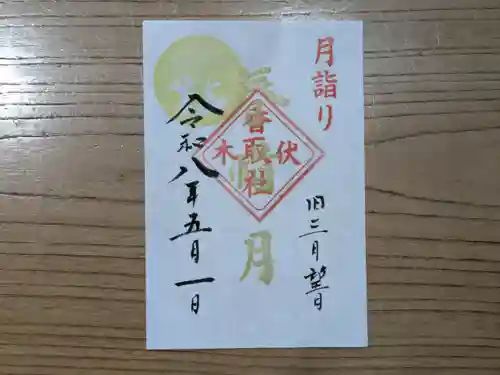 月詣り
旧三月望日
伏木
香取社
月
令和八年五月一日